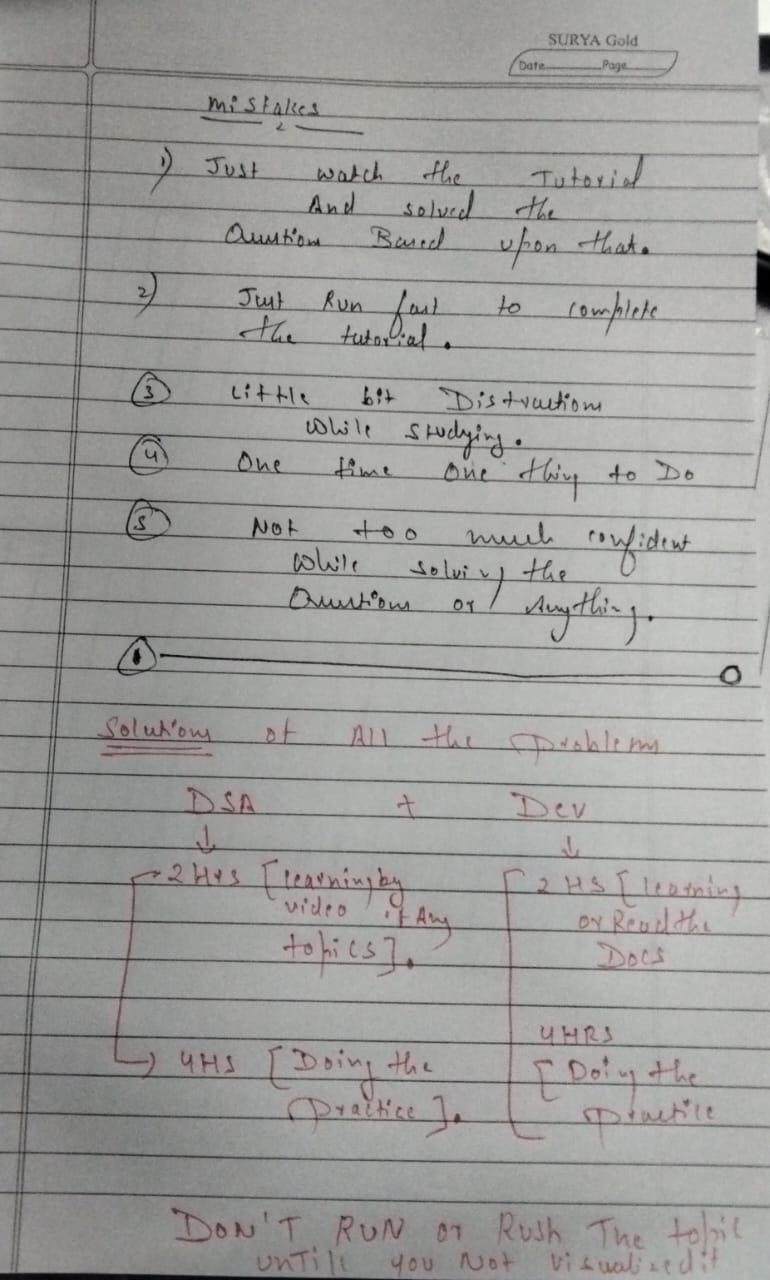 SURYA Gold
Date Page
Mistakes
1) Just watch the Tutorial
And solved the
Question Based upon that.
2) Just Run fast to complete
the tutorial.
3 Little bit Distractions
While studying.
4 One time one thing to Do
5 Not too much confident
While solving the
Questions or Anything.
Solutions of All the problems
DSA + Dev
2 Hrs [learning by 2 HS [learning
video if Any or Read the
topics]. Docs
4HRS
4HS [Doing the [Doing the
practice]. practice
DON'T RUN or Rush The topic
unTill you Not visualized it